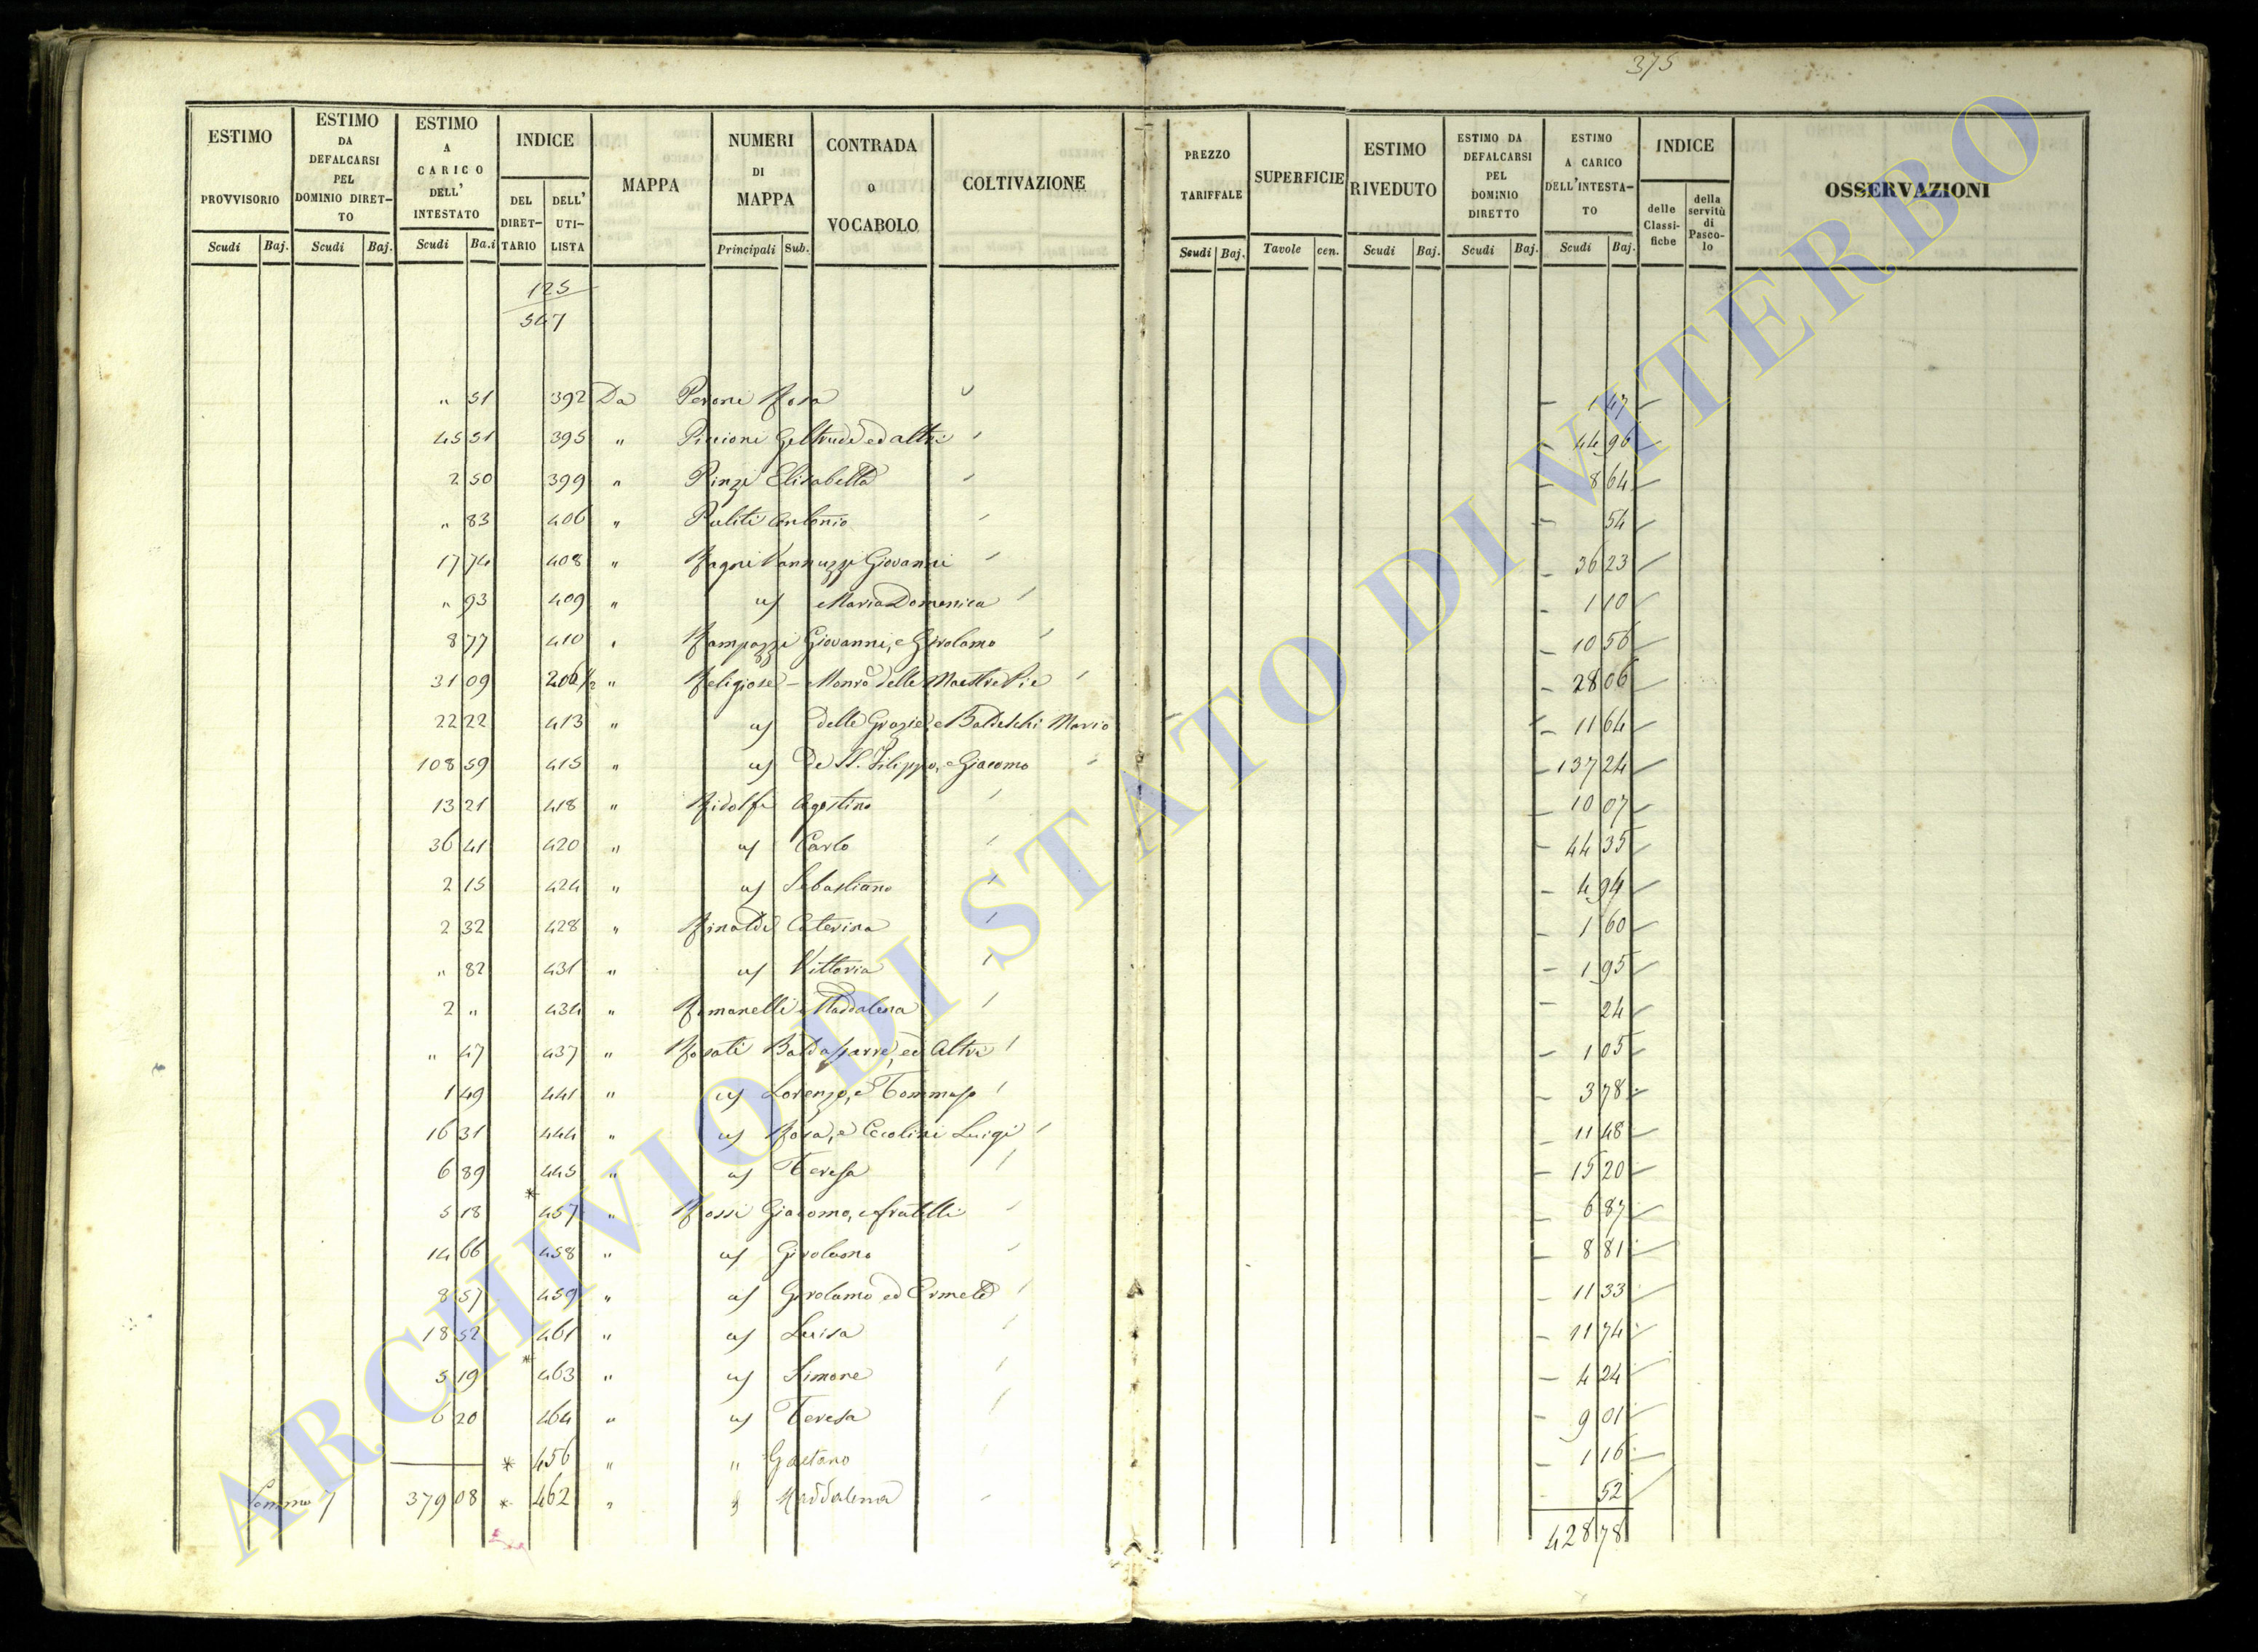 375
ESTIMO PROVVISORIO Scudi Baj. ESTIMO DA DEFALCARSI PEL DOMINIO DIRETTO Scudi Baj. ESTIMO A CARICO DELL' INTESTATO Scudi Ba.i INDICE DEL DIRETTARIO DELL' UTILISTA MAPPA NUMERI DI MAPPA Principali Sub. CONTRADA O VOCABOLO COLTIVAZIONE PREZZO TARIFFALE Scudi Baj. SUPERFICIE Tavole cen. ESTIMO RIVEDUTO Scudi Baj. ESTIMO DA DEFALCARSI PEL DOMINIO DIRETTO Scudi Baj. ESTIMO A CARICO DELL'INTESTATO Scudi Baj. INDICE delle Classifiche della servitù di Pascolo OSSERVAZIONI
125
547
" 51 392 Da Perone Rosa 1 47
45 51 395 " Piccioni Geltrude ed altri 44 96
2 50 399 " Pinzi Elisabetta 8 64
" 83 406 " Puliti Antonio 54
17 74 408 " Ragni Vannuzzi Giovanni 36 23
" 93 409 " uj Maria Domenica 1 10
8 77 410 " Rampazzi Giovanni, e Girolamo 10 56
31 09 206 1/2 " Religiose - Monro delle Maestre Pie 28 06
22 22 413 " uj delle Grazie, e Baldeschi Mario 11 64
108 59 415 " uj De SS. Filippo, e Giacomo 137 24
13 21 418 " Ridolfi Agostino 10 07
36 41 420 " uj Carlo 44 35
2 15 424 " uj Sebastiano 4 94
2 32 428 " Rinaldi Caterina 1 60
" 82 431 " uj Vittoria 1 95
2 " 434 " Romanelli Maddalena 24
" 47 437 " Rosati Baldassarre, ed Altri 1 05
1 49 441 " uj Lorenzo, e Tommaso 3 78
16 31 444 " uj Rosa, e Cecolini Luigi 11 48
6 89 445 " uj Teresa 15 20
5 18 * 457 " Rossi Giacomo, e fratelli 6 87
14 66 458 " uj Girolamo 8 81
8 57 459 " uj Girolamo ed Ermete 11 33
18 52 461 " uj Luisa 11 74
3 19 * 463 " uj Simone 4 24
6 20 464 " uj Teresa 9 01
* 456 " " Gaetano 1 16
Somma 379 08 * 462 " " Maddalena 52
428 78
ARCHIVIO DI STATO DI VITERBO